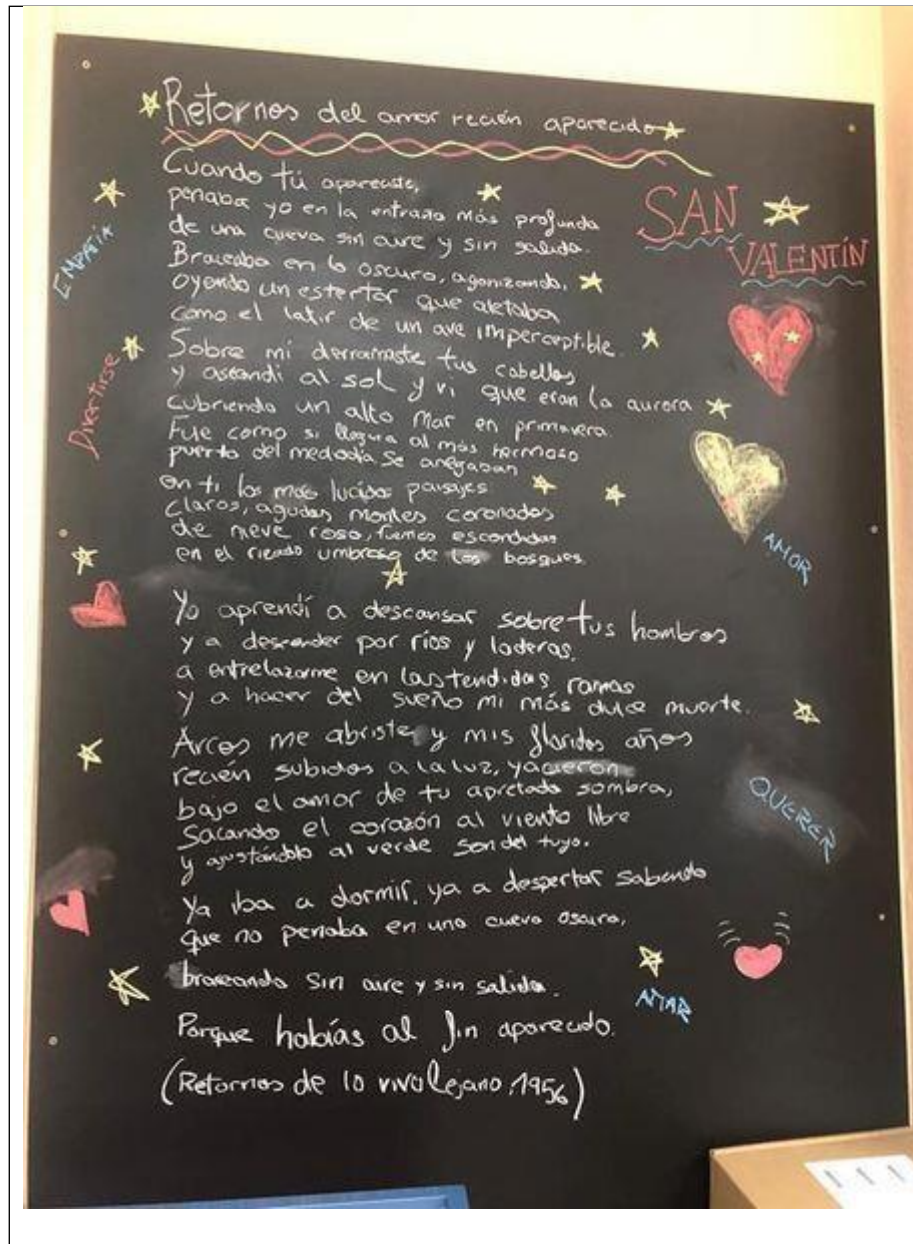 Retornos del amor recién aparecido
SAN
VALENTÍN
Cuando tú apareciste,
penaba yo en la entraña más profunda
de una cueva sin aire y sin salida.
Braceaba en lo oscuro, agonizando,
oyendo un estertor que aleteaba
como el latir de un ave imperceptible.
Sobre mi derramaste tus cabellos
y ascendí al sol y vi que eran la aurora
cubriendo un alto mar en primavera.
Fue como si llegara al más hermoso
puerto del mediodía. Se anegaban
en ti los más lucidos paisajes:
claros, agudos montes coronados
de nieve rosa, fuentes escondidas
en el rizado umbroso de los bosques.
Yo aprendí a descansar sobre tus hombros
y a descender por ríos y laderas,
a entrelazarme en las tendidas ramas
y a hacer del sueño mi más dulce muerte.
Arcos me abriste y mis floridos años
recién subidos a la luz, yacieron
bajo el amor de tu apretada sombra,
sacando el corazón al viento libre
y ajustándolo al verde son del tuyo.
Ya iba a dormir, ya a despertar sabiendo
que no penaba en una cueva oscura,
braceando sin aire y sin salida.
Porque habías al fin aparecido.
(Retornos de lo vivo lejano, 1956)
EMPATÍA
Divertirse
AMOR
QUERER
AMAR